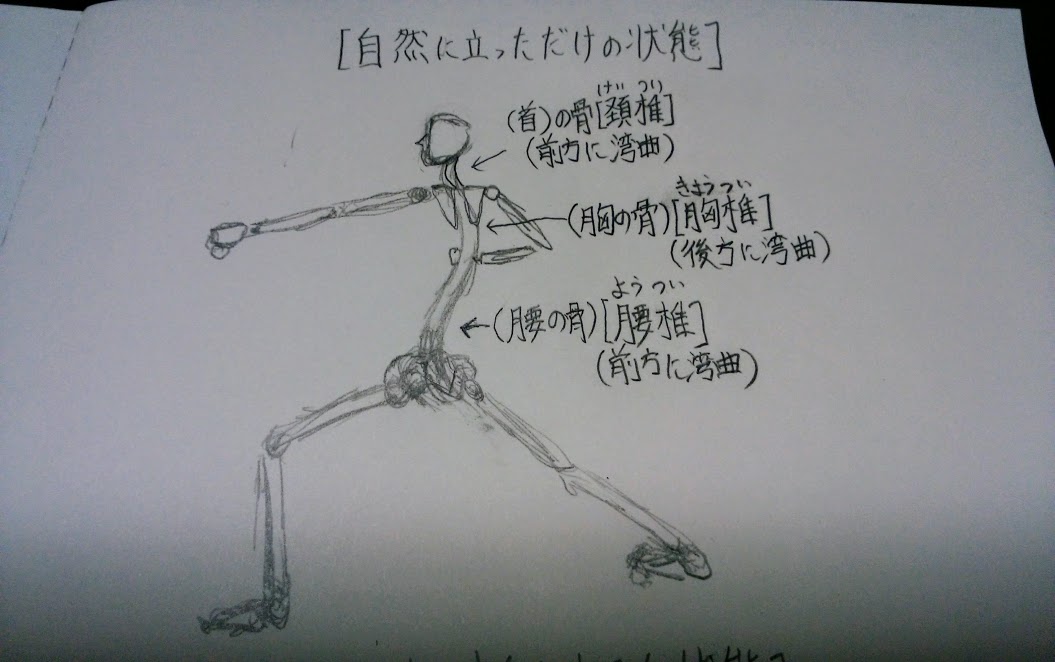 [自然に立っただけの状態]
けい つい
(首)の骨[頚椎]
(前方に湾曲)
きょうつい
(胸の骨)[胸椎]
(後方に湾曲)
よう つい
(腰の骨)[腰椎]
(前方に湾曲)